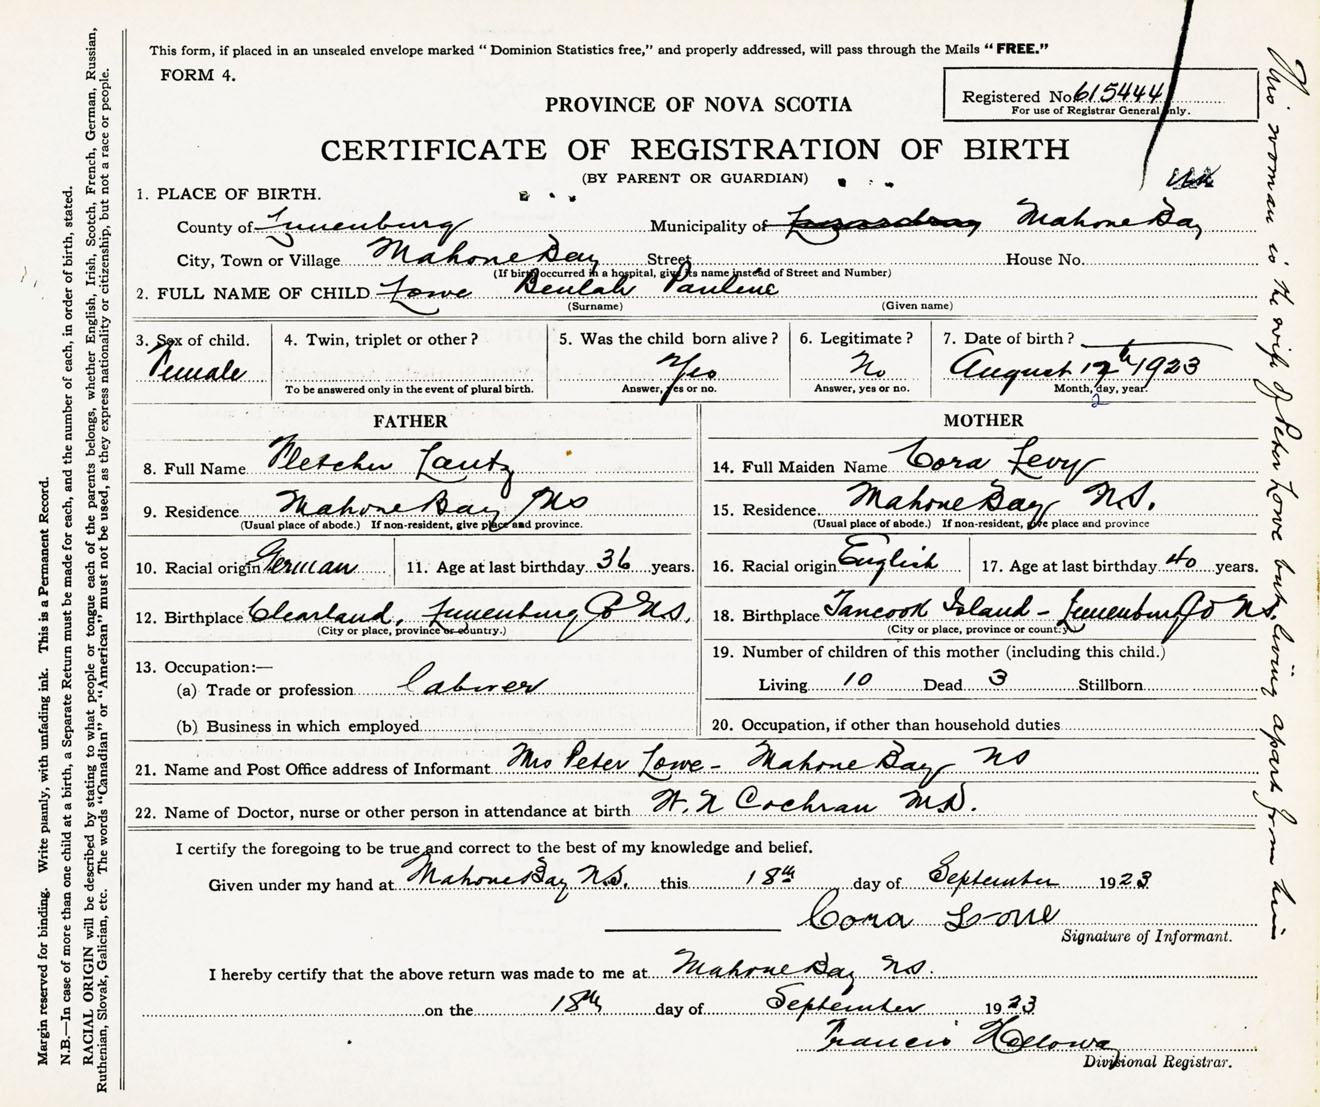 This form, if placed in an unsealed envelope marked “ Dominion Statistics free,” and properly addressed, will pass through the Mails “ FREE.”
FORM 4.
Registered No. 615444
For use of Registrar General only.
PROVINCE OF NOVA SCOTIA
CERTIFICATE OF REGISTRATION OF BIRTH
(BY PARENT OR GUARDIAN)
1. PLACE OF BIRTH.
County of Lunenburg Municipality of Mahone Bay
City, Town or Village Mahone Bay Street House No.
(If birth occurred in a hospital, give its name instead of Street and Number)
2. FULL NAME OF CHILD Lowe Beulah Pauline
(Surname) (Given name)
3. Sex of child. 4. Twin, triplet or other ? 5. Was the child born alive ? 6. Legitimate ? 7. Date of birth ?
Female Yes No August 12th 1923
To be answered only in the event of plural birth. Answer, yes or no. Answer, yes or no. Month, day, year.
2
FATHER
8. Full Name Fletcher Lantz
9. Residence Mahone Bay NS
(Usual place of abode.) If non-resident, give place and province.
10. Racial origin German 11. Age at last birthday 36 years.
12. Birthplace Clearland, Lunenburg Co NS.
(City or place, province or country.)
13. Occupation:—
(a) Trade or profession laborer
(b) Business in which employed
MOTHER
14. Full Maiden Name Cora Levy
15. Residence Mahone Bay N.S.
(Usual place of abode.) If non-resident, give place and province
16. Racial origin English 17. Age at last birthday 40 years.
18. Birthplace Tancook Island - Lunenburg Co NS.
(City or place, province or country)
19. Number of children of this mother (including this child.)
Living 10 Dead 3 Stillborn
20. Occupation, if other than household duties
21. Name and Post Office address of Informant Mrs Peter Lowe - Mahone Bay NS
22. Name of Doctor, nurse or other person in attendance at birth W. N Cochran M.D.
I certify the foregoing to be true and correct to the best of my knowledge and belief.
Given under my hand at Mahone Bay N.S. this 18th day of September 1923
Cora Lowe
Signature of Informant.
I hereby certify that the above return was made to me at Mahone Bay NS.
on the 18th day of September 1923
Francis Hollowa
Divisional Registrar.
Margin reserved for binding. Write plainly, with unfading ink. This is a Permanent Record.
N.B.—In case of more than one child at a birth, a Separate Return must be made for each, and the number of each, in order of birth, stated.
RACIAL ORIGIN will be described by stating to what people or tongue each of the parents belongs, whether English, Irish, Scotch, French, German, Russian,
Ruthenian, Slovak, Galician, etc. The words “Canadian” or “American” must not be used, as they express nationality or citizenship, but not a race or people.
This woman is the wife of Peter Lowe but living apart from him